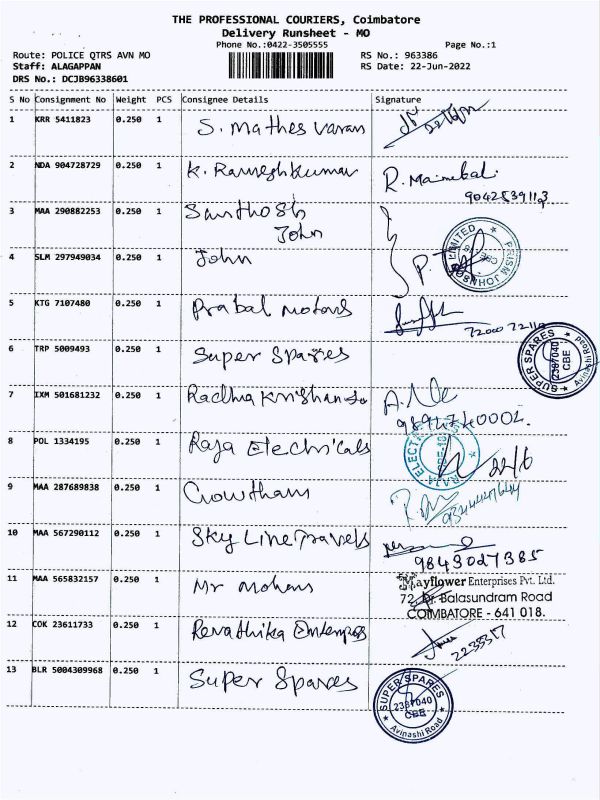 THE PROFESSIONAL COURIERS, Coimbatore
Delivery Runsheet - MO
Phone No.:0422-3505555
Page No.:1
Route: POLICE QTRS AVN MO
RS No.: 963386
Staff: ALAGAPPAN
RS Date: 22-Jun-2022
DRS No.: DCJB96338601
S No Consignment No Weight PCS Consignee Details Signature
1 KRR 5411823 0.250 1 S. Mathes varan
2 NDA 904728729 0.250 1 K. Rameshkumar R.
3 MAA 290882253 0.250 1 Santhosh
John
PRISM JOHNSON LIMITED
CBE
4 SLM 297949034 0.250 1 John P.
5 KTG 7107480 0.250 1 Prabal motors
6 TRP 5009493 0.250 1 Super Spares
SUPER SPARES
2387040
CBE
Avinashi Road
7 IXM 501681232 0.250 1 Radha Krishan
8 POL 1334195 0.250 1 Raja Electricals 22/6
RAJA ELECTRICALS
9 MAA 287689838 0.250 1 Gowtham
10 MAA 567290112 0.250 1 Sky Line Travels
9843027385
11 MAA 565832157 0.250 1 Mr Mohans
Mayflower Enterprises Pvt. Ltd.
72, Dr. Balasundram Road
COIMBATORE - 641 018.
12 COK 23611733 0.250 1 Revathika
13 BLR 5004309968 0.250 1 Super Spares
SUPER SPARES
2387040
CBE
Avinashi Road